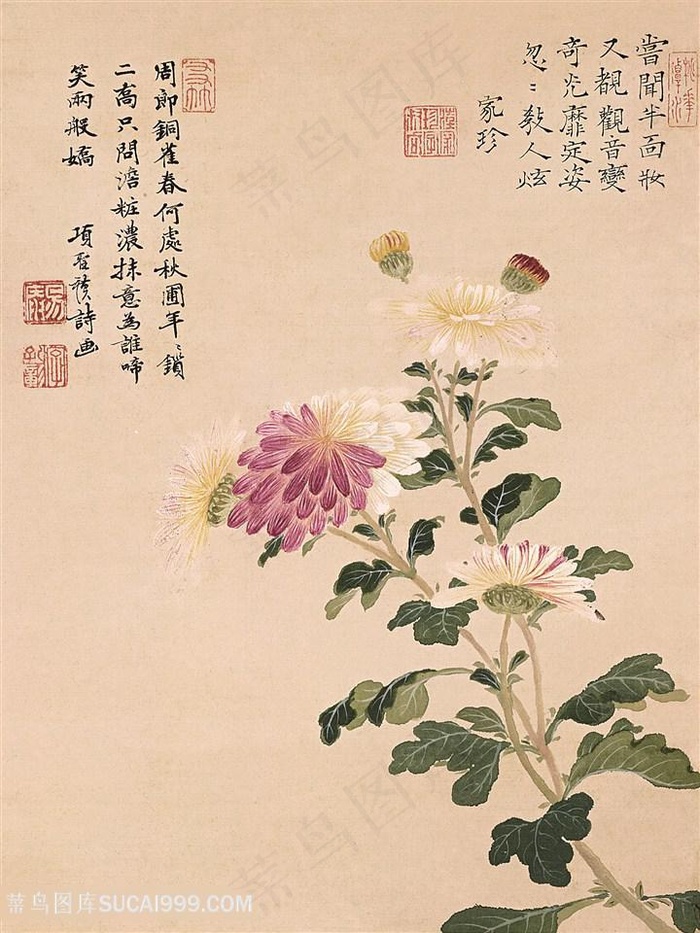 嘗聞半面妝
又覩觀音變
奇光靡定姿
忽〻教人炫
家珍
周郎銅雀春何處秋圃年〻鎖
二喬只問澹粧濃抹意為誰啼
笑兩般嬌
項聖謨詩画
菜鸟图库SUCAI999.COM